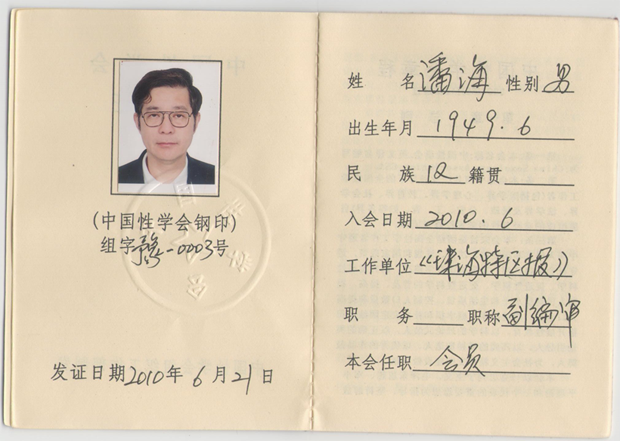 (中国性学会钢印)
组字豫-0003号
发证日期2010年6月21日
姓 名 潘海 性别 男
出生年月 1949.6
民 族 汉 籍贯
入会日期 2010.6
工作单位 《珠海特区报》
职 务 职称 副编审
本会任职 会员